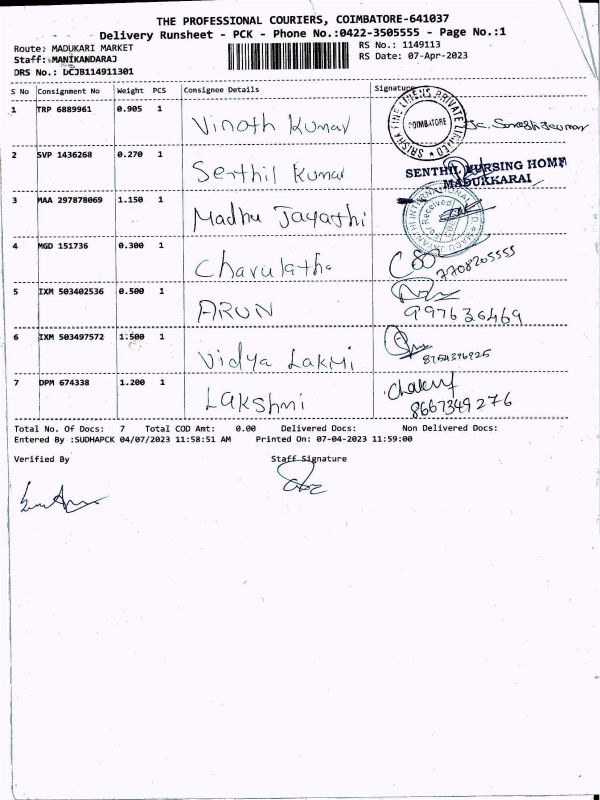 THE PROFESSIONAL COURIERS, COIMBATORE-641037
Delivery Runsheet - PCK - Phone No.:0422-3505555 - Page No.:1
Route: MADUKARI MARKET RS No.: 1149113
Staff: MANIKANDARAJ RS Date: 07-Apr-2023
DRS No.: DCJB114911301
S No Consignment No Weight PCS Consignee Details Signature
1 TRP 6889961 0.905 1 Vinoth Kumar
SRISHA FINE LINENS PRIVATE LIMITED
COIMBATORE
2 SVP 1436268 0.270 1 Senthil Kumar
SENTHIL NURSING HOME
MADUKKARAI
3 MAA 297878069 1.150 1 Madhu Jayathi
Received
4 MGD 151736 0.300 1 Charulatha
7708205555
5 IXM 503402536 0.500 1 ARUN
6 IXM 503497572 1.500 1 Vidya Lakmi
8754376925
7 DPM 674338 1.200 1 Lakshmi
8667349276
Total No. Of Docs: 7 Total COD Amt: 0.00 Delivered Docs: Non Delivered Docs:
Entered By :SUDHAPCK 04/07/2023 11:58:51 AM Printed On: 07-04-2023 11:59:00
Verified By Staff Signature